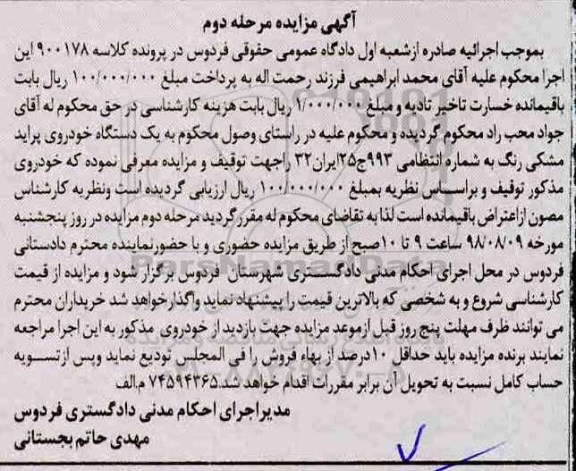 آگهی مزایده مرحله دوم
بموجب اجرائیه صادره ازشعبه اول دادگاه عمومی حقوقی فردوس در پرونده کلاسه ۹۰۰۱۷۸ این
اجرا محکوم علیه آقای محمد ابراهیمی فرزند رحمت اله به پرداخت مبلغ ۱۰۰/۰۰۰/۰۰۰ ریال بابت
باقیمانده خسارت تاخیر تادیه و مبلغ ۱/۰۰۰/۰۰۰ ریال بابت هزینه کارشناسی در حق محکوم له آقای
جواد محب راد محکوم گردیده و محکوم علیه در راستای وصول محکوم به یک دستگاه خودروی پراید
مشکی رنگ به شماره انتظامی ۹۹۳ج۲۵ایران۳۲ راجهت توقیف و مزایده معرفی نموده که خودروی
مذکور توقیف و براساس نظریه بمبلغ ۱۰۰/۰۰۰/۰۰۰ ریال ارزیابی گردیده است ونظریه کارشناس
مصون ازاعتراض باقیمانده است لذا به تقاضای محکوم له مقرر گردید مرحله دوم مزایده در روز پنجشنبه
مورخه ۹۸/۰۸/۰۹ ساعت ۹ تا ۱۰صبح از طریق مزایده حضوری و با حضورنماینده محترم دادستانی
فردوس در محل اجرای احکام مدنی دادگستری شهرستان فردوس برگزار شود و مزایده از قیمت
کارشناسی شروع و به شخصی که بالاترین قیمت را پیشنهاد نماید واگذارخواهد شد خریداران محترم
می توانند ظرف مهلت پنج روز قبل ازموعد مزایده جهت بازدید از خودروی مذکور به این اجرا مراجعه
نمایند برنده مزایده باید حداقل ۱۰درصد از بهاء فروش را فی المجلس تودیع نماید وپس ازتسویه
حساب کامل نسبت به تحویل آن برابر مقررات اقدام خواهد شد.۷۴۵۹۴۳۶۵ م.الف
مدیراجرای احکام مدنی دادگستری فردوس
مهدی حاتم بجستانی
ParsNamadData